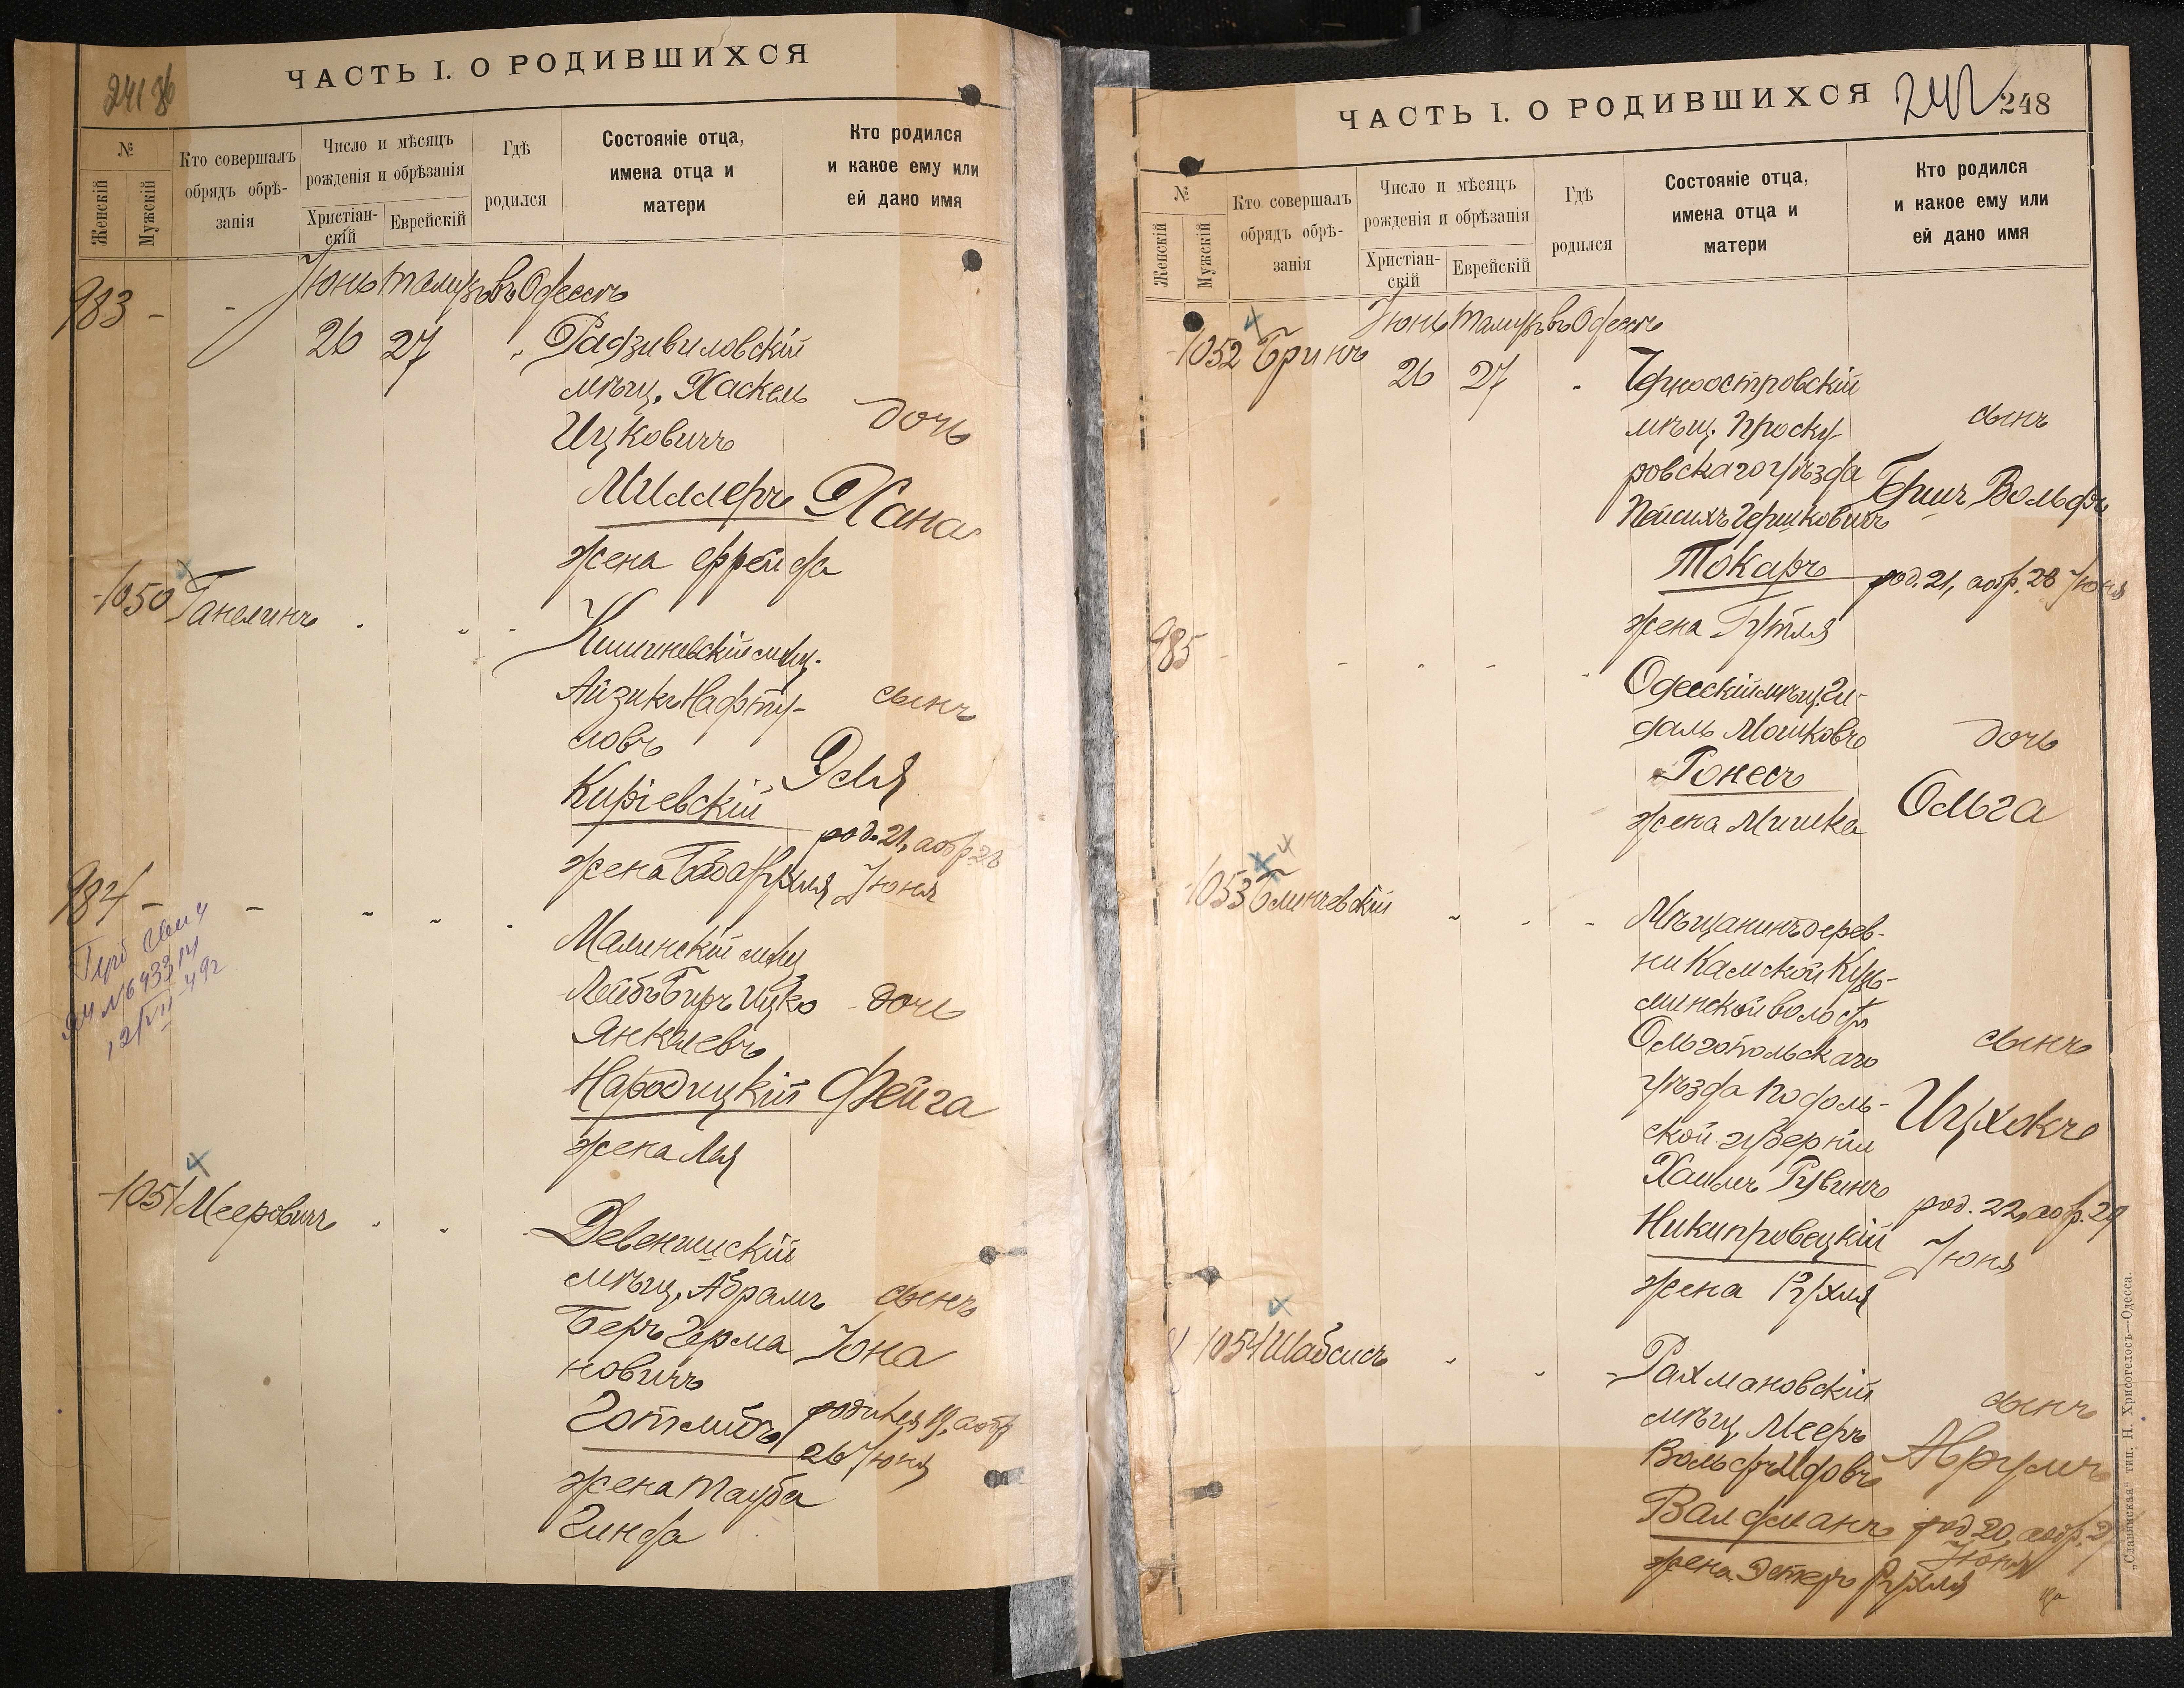 241 об
ЧАСТЬ I. О РОДИВШИХСЯ
№
Женскій
Мужскій
Кто совершалъ
обрядъ обрѣ-
занія
Число и мѣсяцъ
рожденія и обрѣзанія
Христіан-
скій
Еврейскій
Гдѣ
родился
Состояніе отца,
имена отца и
матери
Кто родился
и какое ему или
ей дано имя
Іюнь Тамузъ въ Одессѣ
983 - -
26 27 " Радзивиловскій
мѣщ. Хаскель
дочь
Ицковичъ
Миллеръ Хана
жена Фрейда
1050 Ганелинъ
Кишиневскій мѣщ.
Айзикъ Нафту-
сынъ
ловъ
Эля
Кифіевскій
род. 21, а обр. 28
жена Баба Рухля Іюня
984 - -
Малинскій мѣщ
Лейбъ Беръ Ицко дочь
Янкелевъ
Народицкій Фейга
жена Лея
1051 Мееровичъ
Девенишскій
мѣщ. Абрамъ сынъ
Беръ Герма Іона
новичъ
Готлибъ родился 19, а обр
26 Іюня
жена Тауба
Гинда
12/VII 49г
242 248
ЧАСТЬ I. О РОДИВШИХСЯ
№
Женскій
Мужскій
Кто совершалъ
обрядъ обрѣ-
занія
Число и мѣсяцъ
рожденія и обрѣзанія
Христіан-
скій
Еврейскій
Гдѣ
родился
Состояніе отца,
имена отца и
матери
Кто родился
и какое ему или
ей дано имя
Іюнь Тамузъ въ Одессѣ
1052 Бринъ
26 27 " Черноостровскій
сынъ
мѣщ. Проску-
ровскаго уѣзда
Вольфъ
Пейсихъ Гершковичъ
Токаръ
род. 21, а обр. 28 Іюня
жена Гутля
985 -
Одесскій мѣщ. Ги-
даль Мошковъ дочь
Гонесъ
Ольга
жена Мишка
1053 Блинчевскій
Мѣщанинъ дерев-
ни Камской Кузь-
минской волости
Ольгопольскаго сынъ
уѣзда Подоль-
Ицхокъ
ской губерніи
Хаимъ Рувинъ
род. 22, а обр. 29
Никипровецкій
Іюня
жена Рухля
1054 Шабсисъ
Рахмановскій
сынъ
мѣщ. Мееръ
Вольфъ Идовъ Аврумъ
Валдманъ род 20, а обр. 27
Іюня
жена Эстеръ Рухля
„Славянская“ тип. Н. Хрисогелосъ—Одесса.